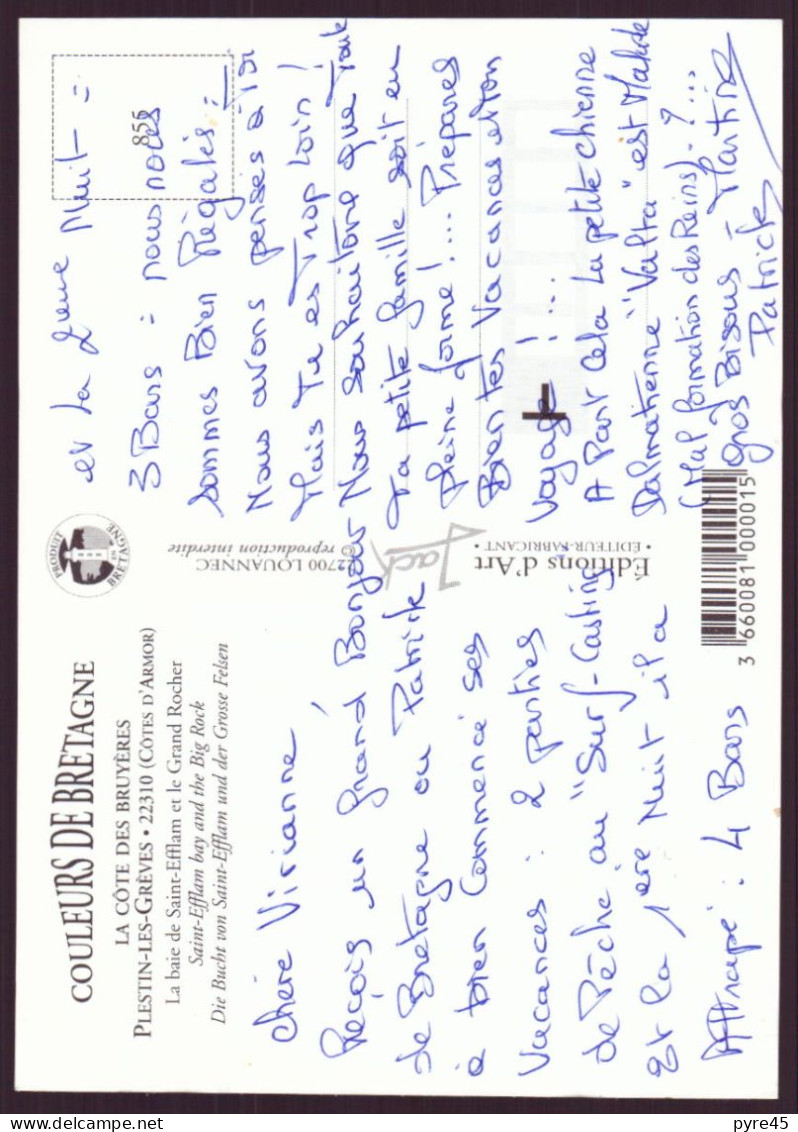 COULEURS DE BRETAGNE
LA CÔTE DES BRUYÈRES
PLESTIN-LES-GRÈVES • 22310 (CÔTES D'ARMOR)
La baie de Saint-Efflam et le Grand Rocher
Saint-Efflam bay and the Big Rock
Die Bucht von Saint-Efflam und der Grosse Felsen
Chère Virianne,
Reçois un grand Bonjour
de Bretagne ou Patrick
à bien Commencé ses
Vacances : 2 parties
de Pêche au "Surf-Casting
Et la 1ère Nuit il a
Attrapé : 4 Bars
PRODUIT EN BRETAGNE
22700 LOUANNEC
© reproduction interdite
Jack
Éditions d'Art
• ÉDITEUR-FABRICANT •
855
et la 2ème Nuit =
3 Bars = nous nous
sommes Bien Régalés =
Nous avons pensés à Toi
Mais Tu es Trop Loin !
Nous Souhaitons que Toute
Ta petite famille soit en
pleine forme !... Prépares
Bien Tes Vacances et Ton
Voyage !...
A Part Cela La petite Chienne
Dalmatienne "Valta" est Malade
(Mal formation des Reins) - ?...
Gros Bisous - Martine
Patrick
3 660081 000015
pyre45